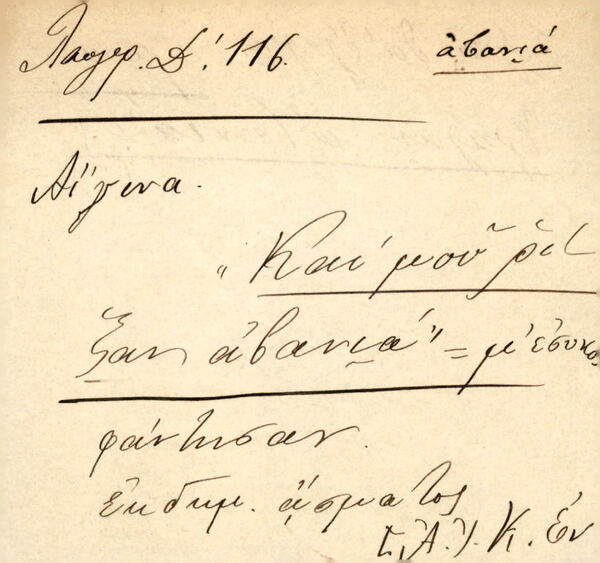 Λαογρ. Δ'. 116. ἀβανιά
Αἴγινα.
"Καὶ μοῦ ῥί
ξαν ἀβανιά" = μ' ἐσυκο
φάντησαν.
ἐκ δημ. ᾄσματος
Κ. Ἐν